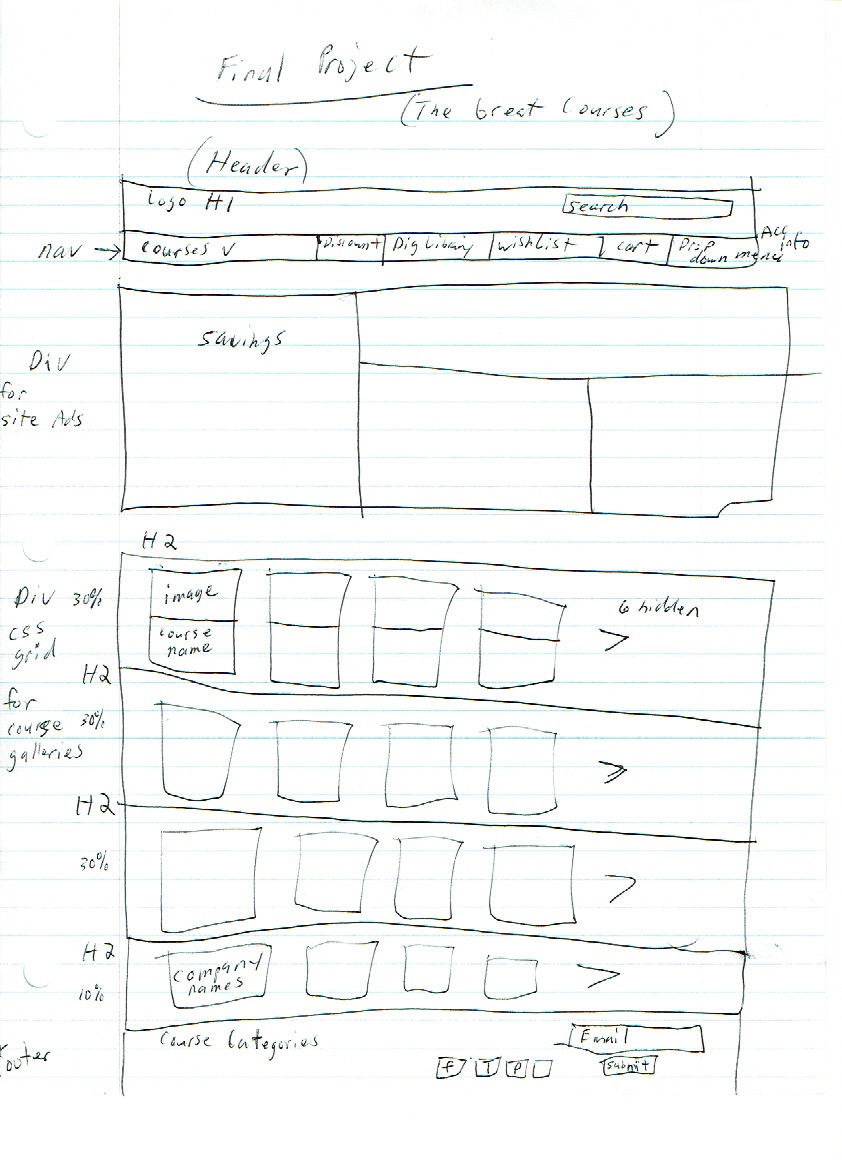 Final Project
(The Great Courses)
(Header)
Logo H1
search
nav →
courses v
Discount
Dig Library
wishlist
cart
Drop down menu
Acc info
Div
for
site Ads
savings
H2
Div 30%
css
grid
for
course
galleries
image
course
name
6 hidden
>
H2
30%
>
H2
30%
>
H2
10%
company
names
>
Footer
Course Categories
Email
f T P
submit